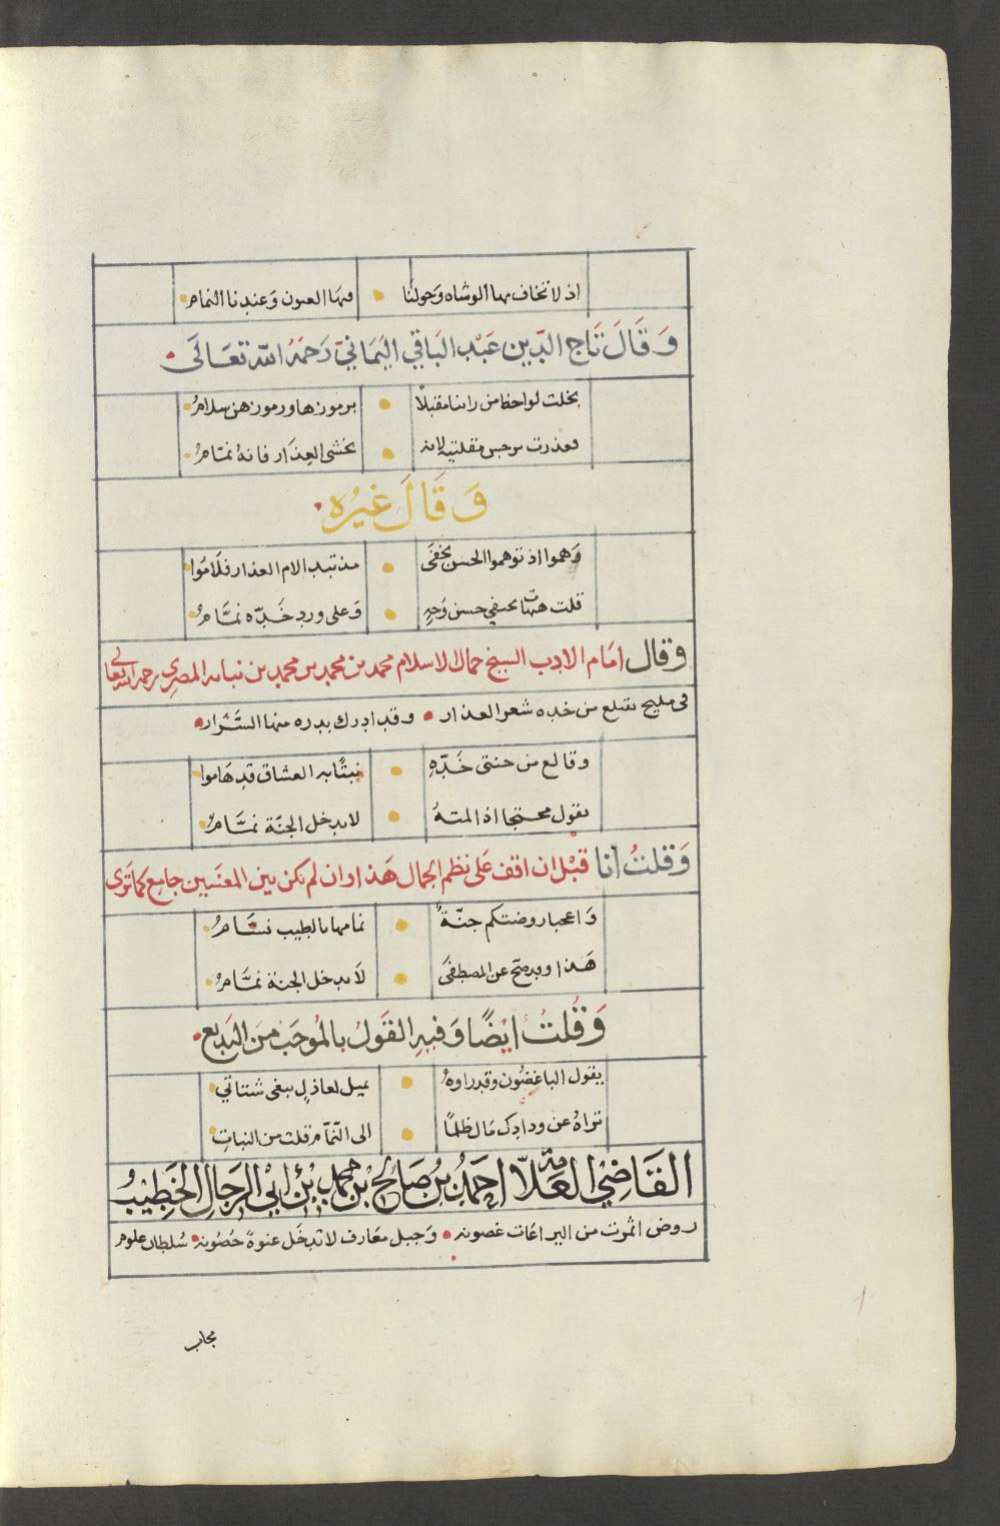 اذ لا نخاف بها الوشاه وحولنا • فيها العيون وعندنا النمام
وَقَالَ تَاج الدّين عَبْد البَاقي اليَمَانيّ رَحمَهُ اللّه تعَالَى
بخلت لواحظ من راينا مقبلاً • برموزها ورموزهن سلامُ
فعذرت نرجس مقلتيه لانه • يخشى العِذَار فانهُ نمّامُ
وَقَالَ غيرُه
وَهموا اذ توهموا الحسن يخفَى • مذ تبدا لام العذار فلَامُوا
قلت هيهات يختفي حسن وَجهٍ • وَعلى وردِ خَدّه نمَّامُ
وقال امَام الادب الشيخ جمال الاسلام محمد بن محمد بن محمد بن نباته المصري رحمه الله تعالى
في مليح تقلع من خده شعر العذار • وقد ادرك بدره منها السَّرَار
وقالع من جنتى خَدّهِ • نبتًا به العشاق قد هَاموا
يقول محتجا اذا لمتهُ • لا يدخل الجنّة نمَّامُ
وَقلتُ انا قبْل ان اقف عَلى نظم الجمال هَذا وان لم يكن بين المعنَيين جامع كما تَرى
وَاعجبا روضتكم جنّةٌ • نمامها بالطيب نسَّامُ
هَذا وقد صَحّ عن المصطفَى • لَا يدخل الجنة نمَّامُ
وَقُلتُ ايْضًا وَفيهِ القَولُ بالمُوجَب مِنَ البَديع
يقول الباغضُون وقد راوهُ • يميل لعاذلٍ يبغى شتاتي
تراهُ عن ودادِك مَال ظلمًا • الى النّمّام قلت من النباتِ
القَاضِي العَلاّمة احَمدُ بنُ صَالِح بْن محمد بْن ابِي الرجَالِ الخَطِيبُ
روض اثمرت من البراعَات غصونه • وَجبل معَارف لا تدخَل عنوة حُصُونه • سُلطان علوم